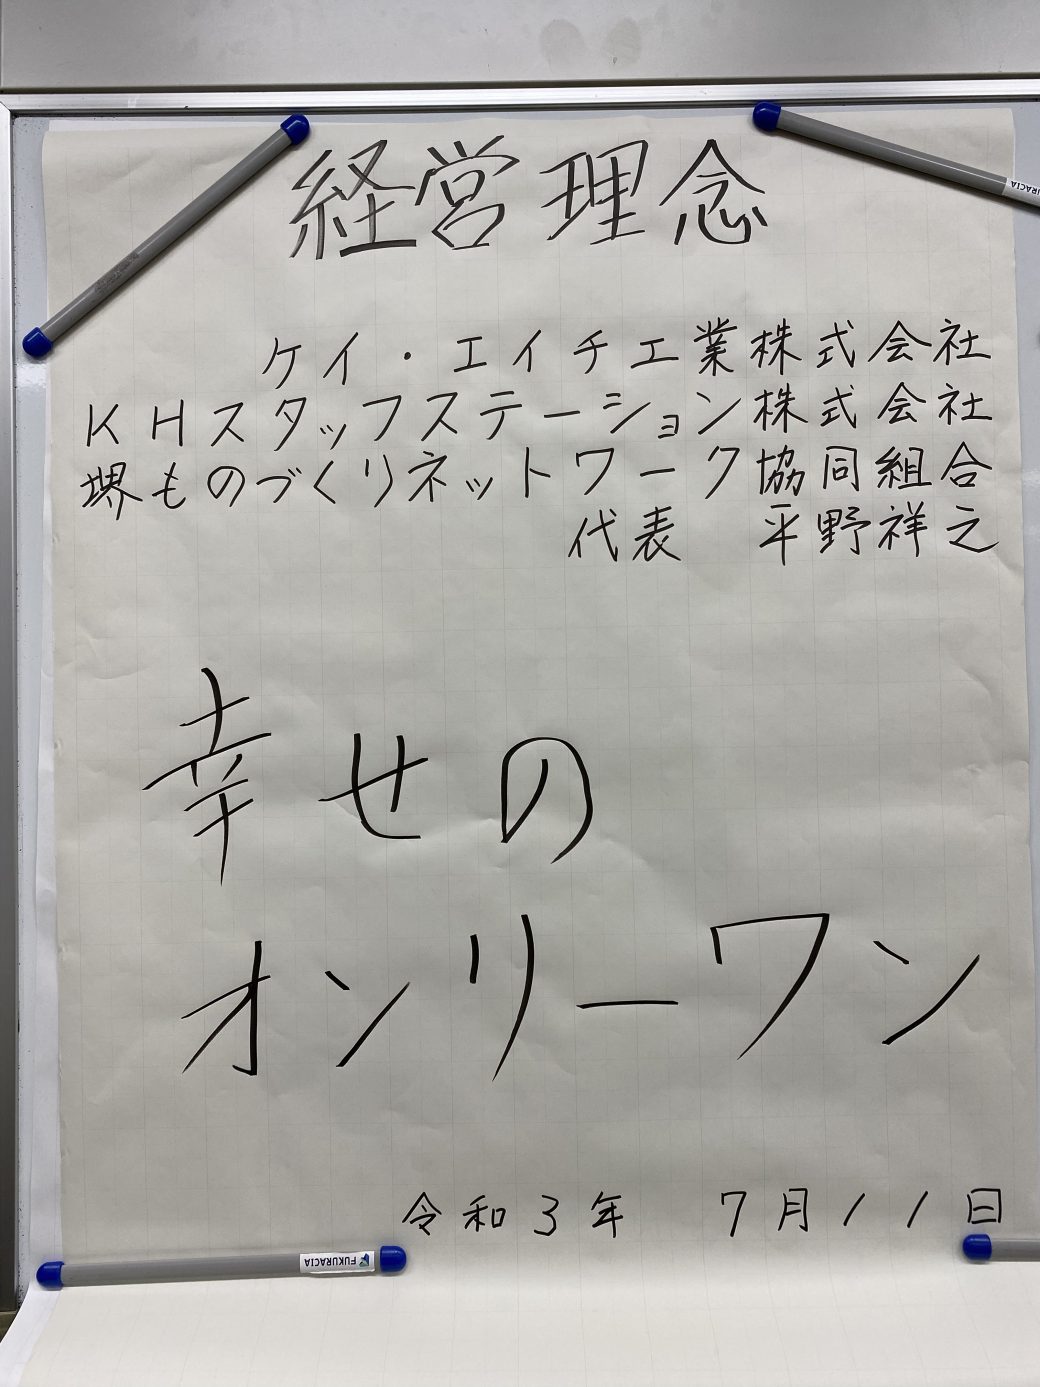 経営理念
ケイ・エイチ工業株式会社
KHスタッフステーション株式会社
堺ものづくりネットワーク協同組合
代表 平野祥之
幸せの
オンリーワン
令和3年 7月11日
FUKURACIA